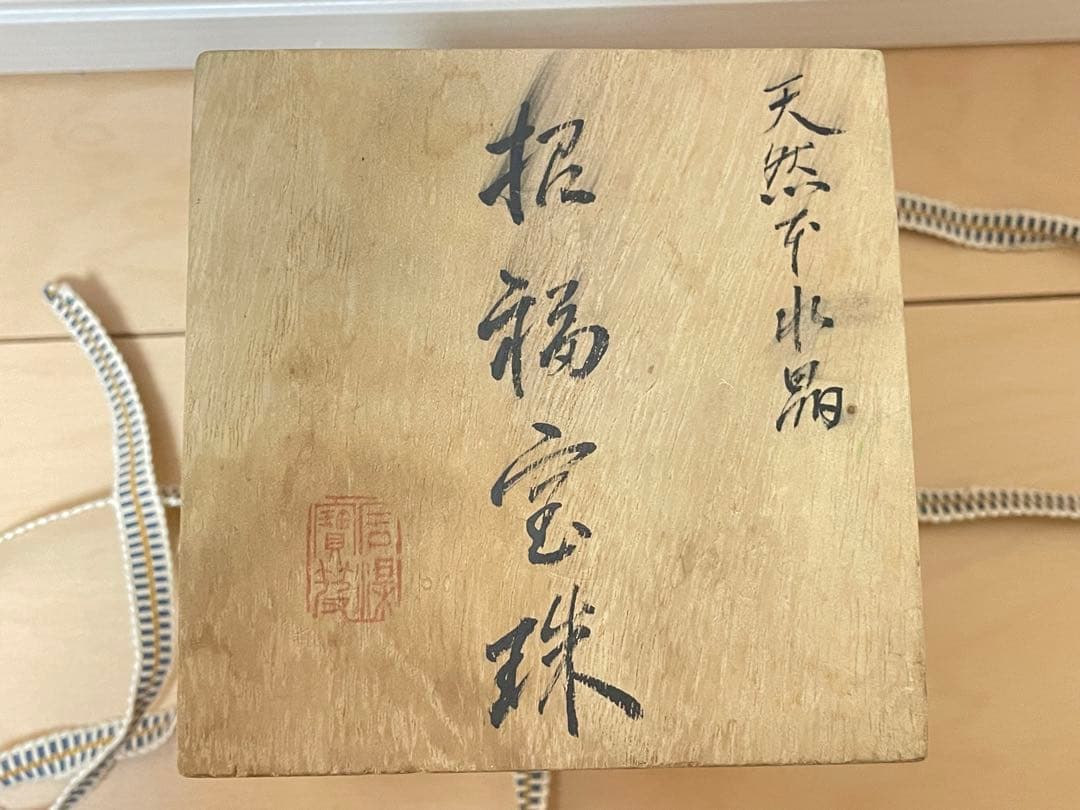 天然本水晶
招福宝珠